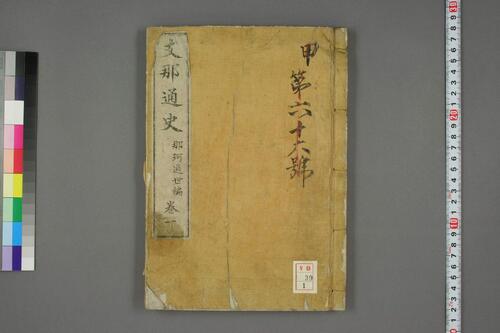 甲第六十六號
支那通史
那珂通世編
卷一
39
1